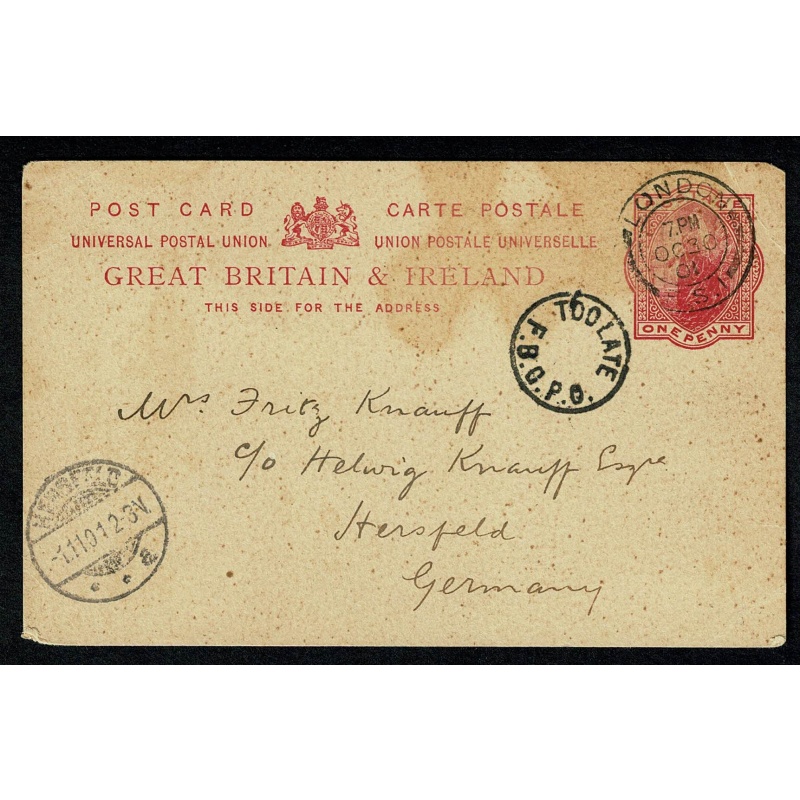 POST CARD CARTE POSTALE
UNIVERSAL POSTAL UNION UNION POSTALE UNIVERSELLE
GREAT BRITAIN & IRELAND
THIS SIDE FOR THE ADDRESS
LONDON
7.PM
OC 30
01
ONE PENNY
TOO LATE
F.B.G.P.O.
Mrs Fritz Knauff
c/o Helwig Knauff Esqre
Hersfeld
Germany
HERSFELD
-1.11.01.2-3.V.
a